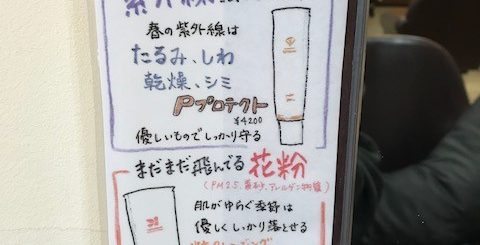 紫外線
春の紫外線は
たるみ、しわ
乾燥、シミ
Pプロテクト
¥4200
優しいものでしっかり守る
まだまだ飛んでる 花粉
(PM2.5、黄砂、アレルゲン物質)
肌がゆらぐ季節は
優しくしっかり落とせる